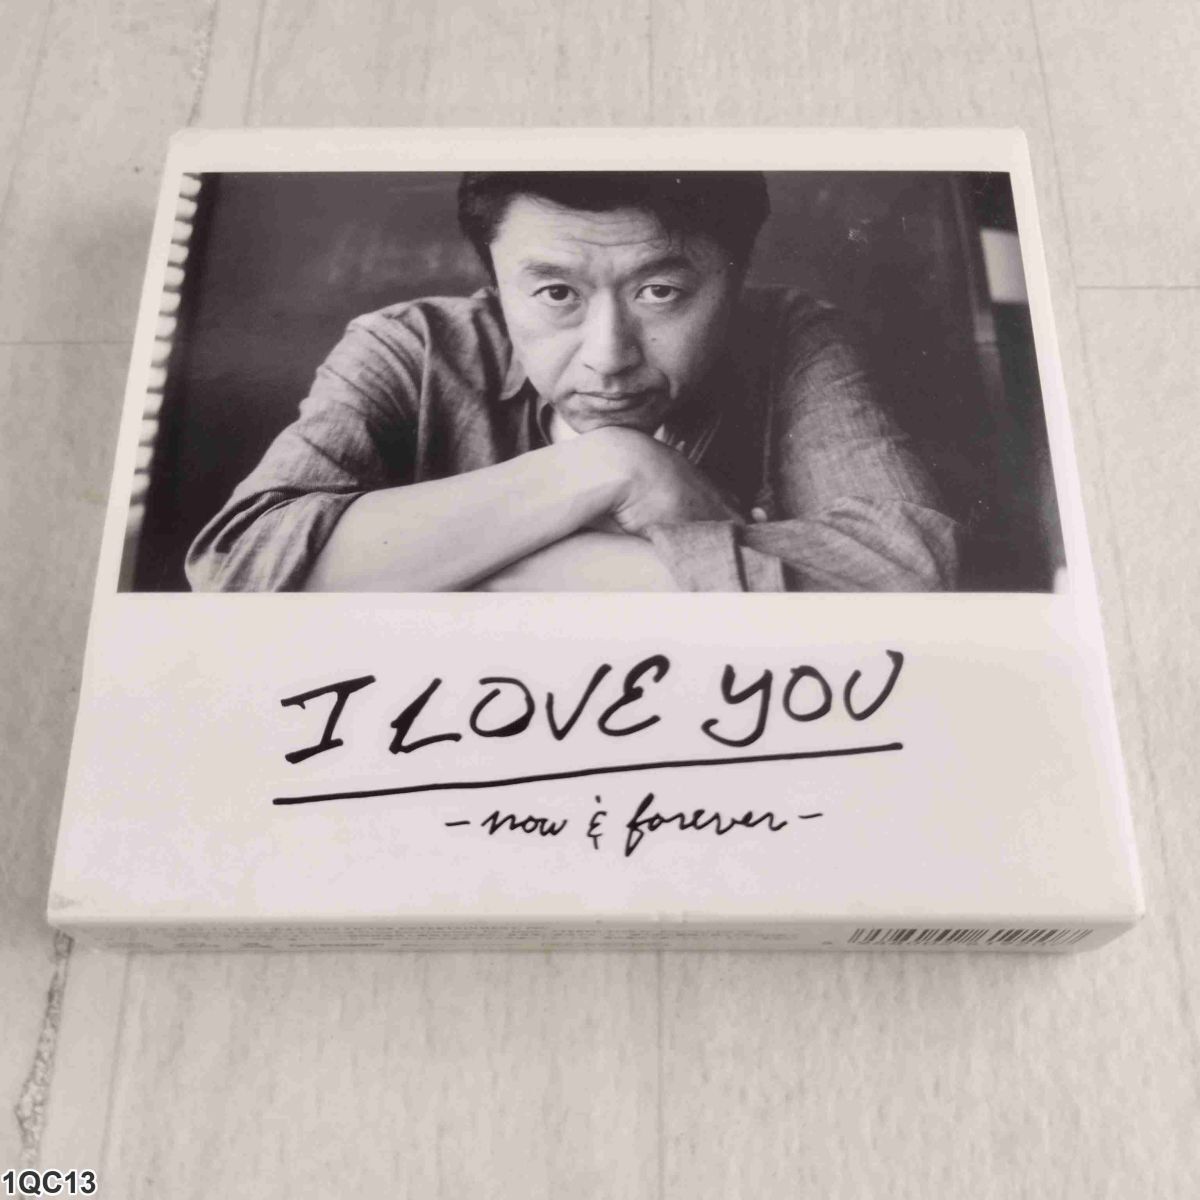 I LOVE YOU
-now & forever-
1QC13